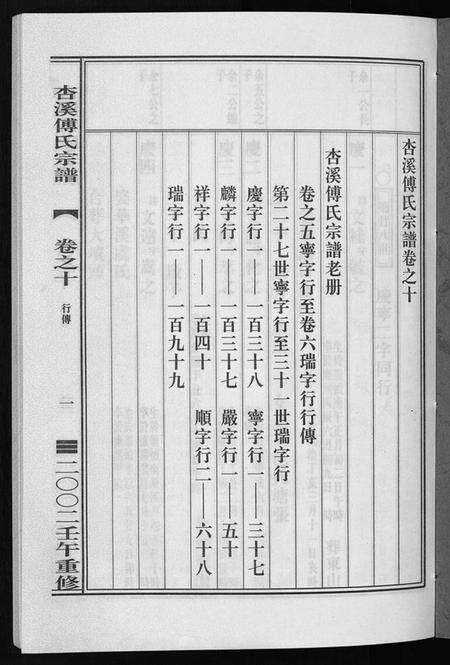 杏溪傅氏宗譜卷之十
杏溪傅氏宗譜老册
卷之五寧字行至卷六瑞字行行傳
第二十七世寧字行至三十一世瑞字行
慶字行一——一百三十八　寧字行一——三十七
麟字行一——一百三十七　嚴字行一——五十
祥字行一——一百四十　順字行二——六十八
瑞字行一——一百九十九
杏溪傅氏宗譜
【
卷之十
行傳
一
二〇〇二壬午重修